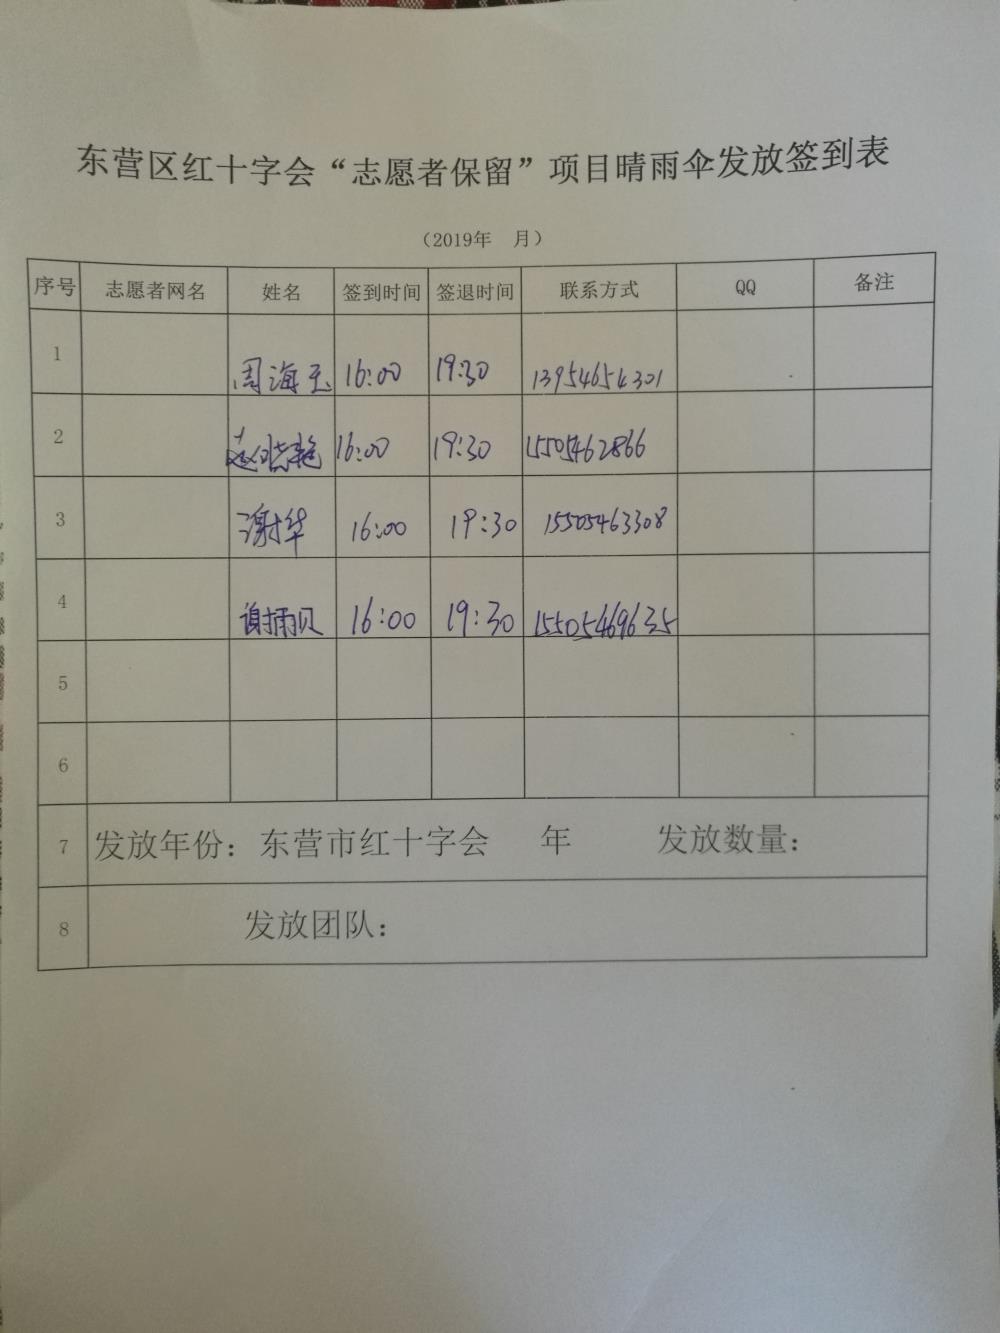 东营区红十字会“志愿者保留”项目晴雨伞发放签到表
（2019年 月）
序号 志愿者网名 姓名 签到时间 签退时间 联系方式 QQ 备注
1 周海玉 16:00 19:30 13954654301
2 赵晓艳 16:00 19:30 15505462866
3 谢华 16:00 19:30 15505463308
4 谢雨贝 16:00 19:30 15505469635
5
6
7 发放年份：东营市红十字会 年 发放数量：
8 发放团队：